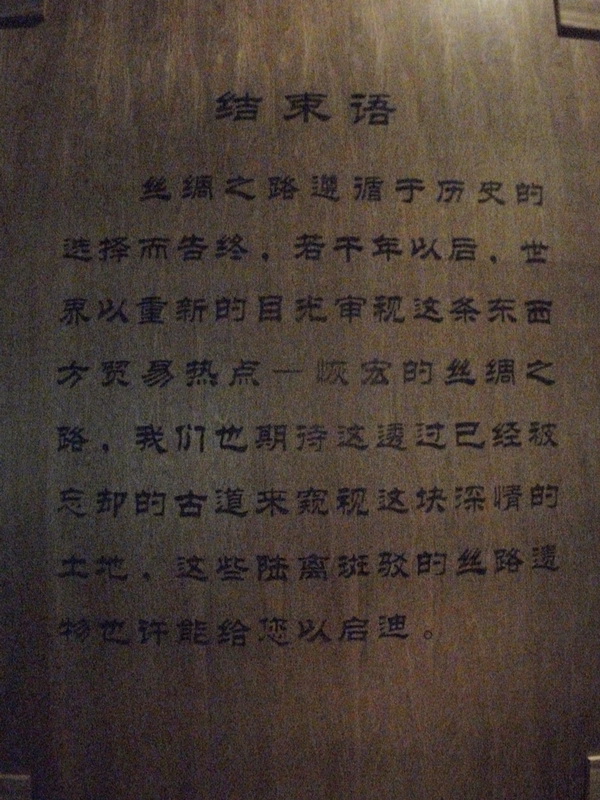 结束语
丝绸之路遵循于历史的
选择而告终，若干年以后，世
界以重新的目光审视这条东西
方贸易热点一恢宏的丝绸之
路，我们也期待这透过已经被
忘却的古道来窥视这块深情的
土地，这些陆离斑驳的丝路遗
物也许能给您以启迪。